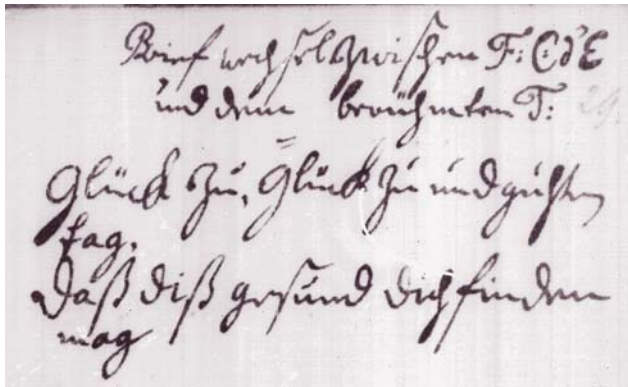 Briefwechsel zwischen F: C d'E
und dem berühmten T:
29.
Glück zu, Glück zu und guhten
tag.
Daß diß gesund dich finden
mag